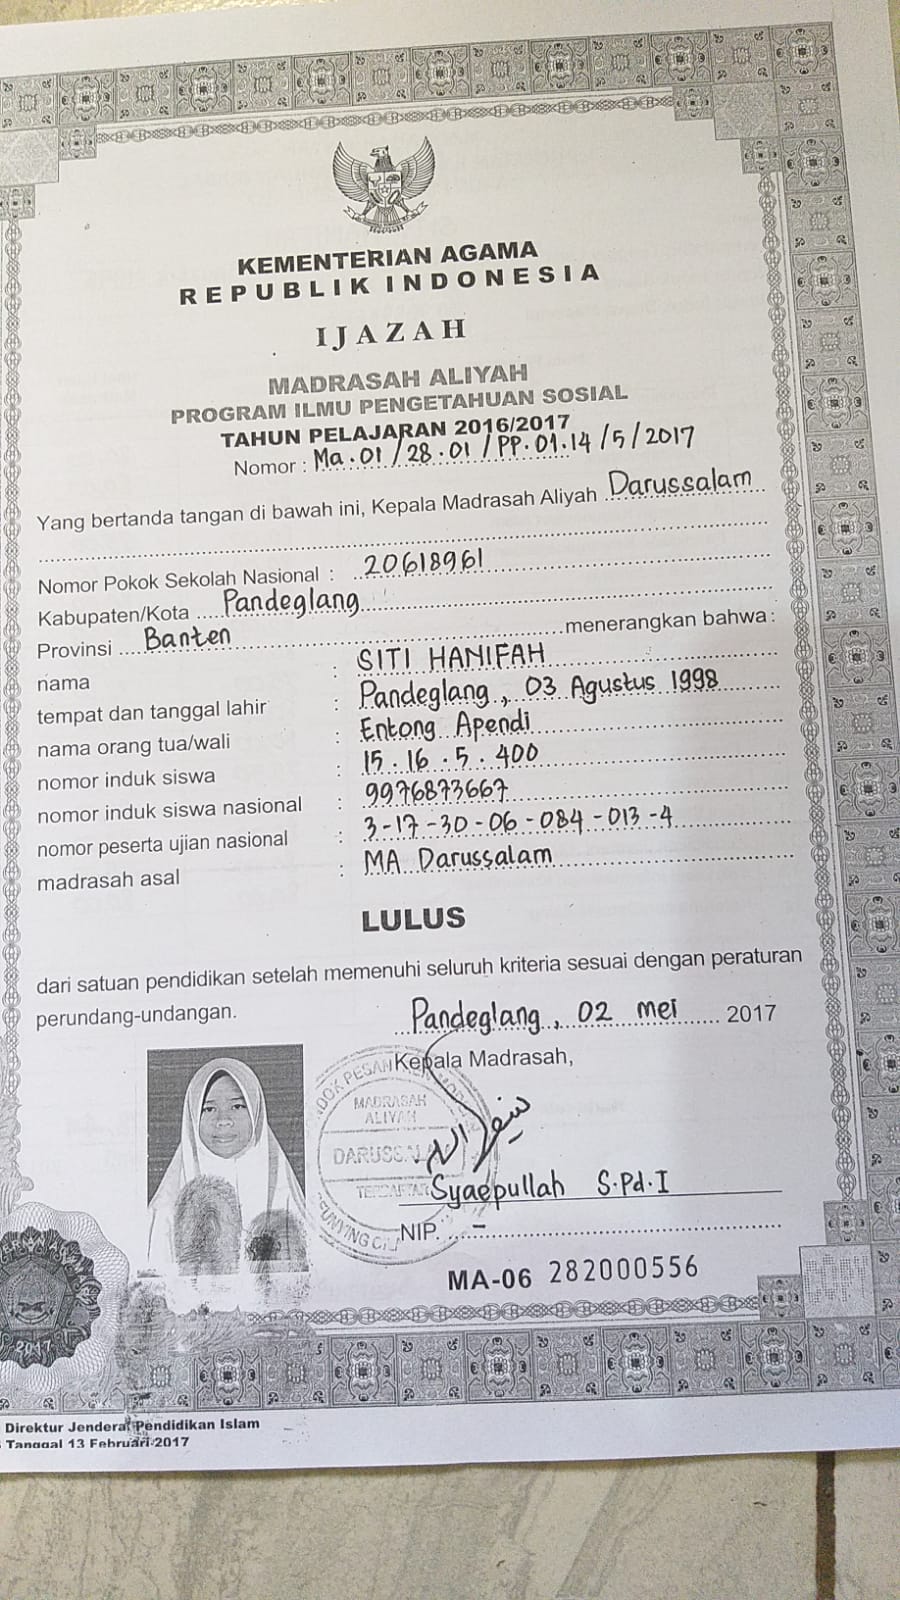 KEMENTERIAN AGAMA
REPUBLIK INDONESIA
IJAZAH
MADRASAH ALIYAH
PROGRAM ILMU PENGETAHUAN SOSIAL
TAHUN PELAJARAN 2016/2017
Nomor : Ma.01/28.01/PP.01.14/5/2017
Yang bertanda tangan di bawah ini, Kepala Madrasah Aliyah Darussalam
Nomor Pokok Sekolah Nasional : 20618961
Kabupaten/Kota Pandeglang
Provinsi Banten menerangkan bahwa :
nama : SITI HANIFAH
tempat dan tanggal lahir : Pandeglang, 03 Agustus 1998
nama orang tua/wali : Entong Apendi
nomor induk siswa : 15.16.5.400
nomor induk siswa nasional : 9976873667
nomor peserta ujian nasional : 3-17-30-06-084-013-4
madrasah asal : MA Darussalam
LULUS
dari satuan pendidikan setelah memenuhi seluruh kriteria sesuai dengan peraturan
perundang-undangan.
Pandeglang, 02 mei 2017
Kepala Madrasah,
MADRASAH
ALIYAH
Syaepullah S.Pd.I
NIP. -
MA-06 282000556
2017
Direktur Jenderal Pendidikan Islam
Tanggal 13 Februari 2017